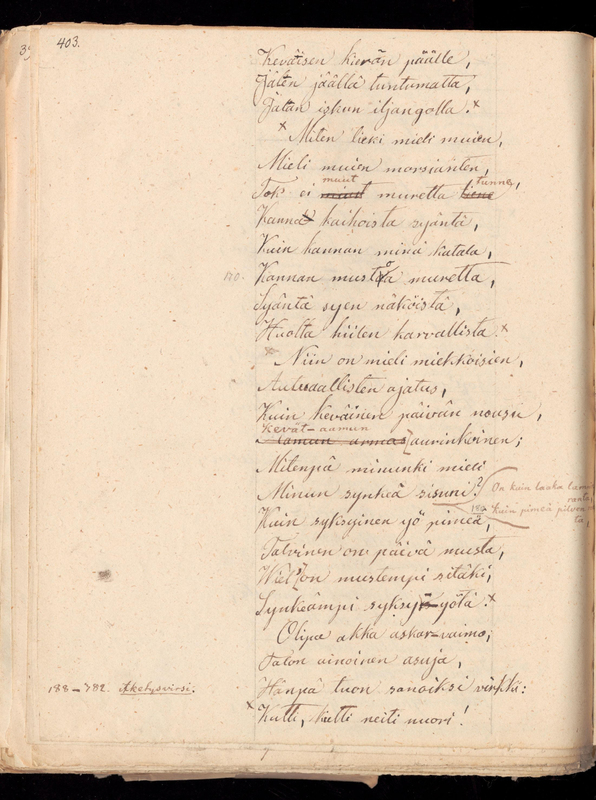 403.
Keväisen kierän päälle,
Jäten jäällä tuntumatta,
Jalan iskun iljangolla.x
x Miten lieki mieli muien,
Mieli muien morsianten,
muut tunne,
Tok ei muut muretta liene
Kanna kaihoista syäntä,
Kuin kannan minä katala,
170. Kannan mustoa muretta,
Syäntä syen näköistä,
Huolta hiilen karvallista.x
x Niin on mieli miekkoisien,
Autuaallisten ajatus,
Kuin keväinen päivän nousu,
kevät-aamun
aamun armas aurinkoinen;
Mitenpä minunki mieli
Minun synkeä sisuni?
On kuin laaka
ranta,
Kuin pimeä pilven
ta,
Kuin syksyinen yö pimeä,
180
Talvinen on päivä musta,
Wiel' on mustempi sitäki,
Synkeämpi syksy-yötä.x
Olipa akka askar-vaimo;
Talon ainoinen asuja,
188–382. Akehysvirsi.
Hänpä tuon sanoiksi virkki:
x Kutti, kutti neiti nuori!